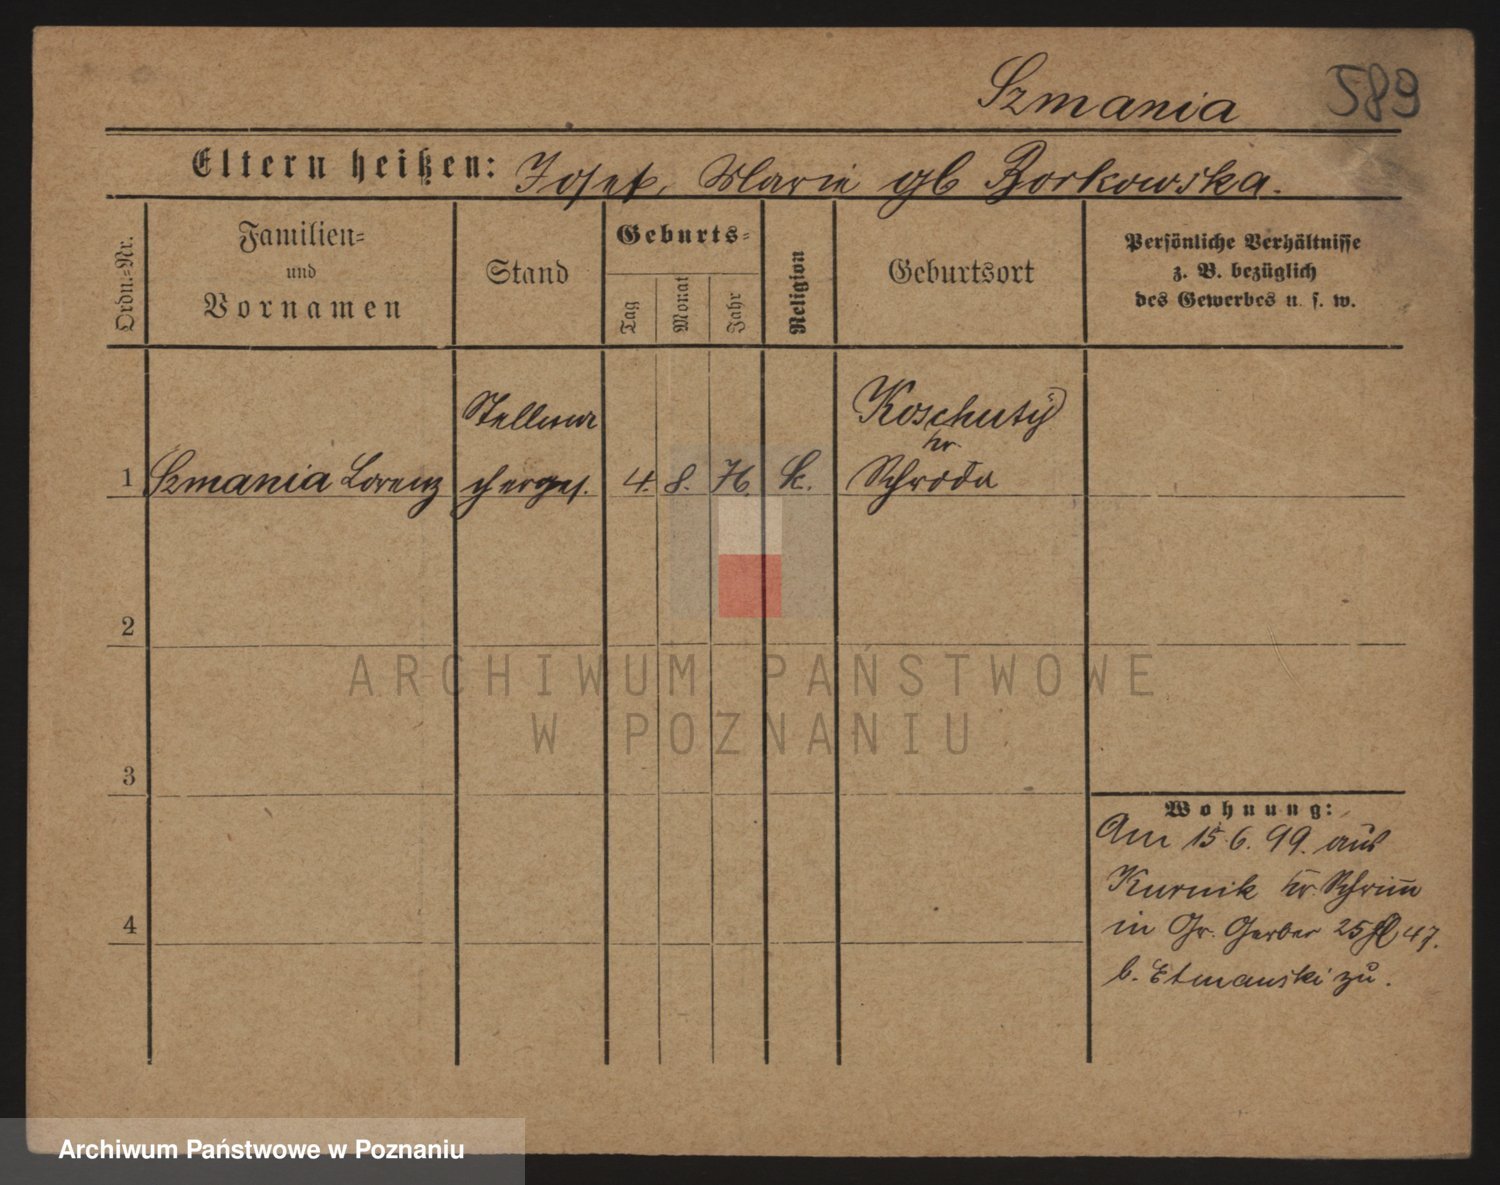 Szmania 589
Eltern heißen: Josef, Marie gb Borkowska.
Ordn.=Nr.
Familien=
und
Vornamen
Stand
Geburts=
Tag
Monat
Jahr
Religion
Geburtsort
Persönliche Verhältnisse
z. B. bezüglich
des Gewerbes u. s. w.
1 Szmania Lorenz
Stellma
cherges.
4. 8. 76. k.
Koschuty
kr.
Schroda
2
3
4
Wohnung:
Am 15.6.99. aus
Kurnik kr. Schrimm
in Gr. Gerber 25 47.
b. Etmanski zu.
ARCHIWUM PAŃSTWOWE
W POZNANIU
Archiwum Państwowe w Poznaniu